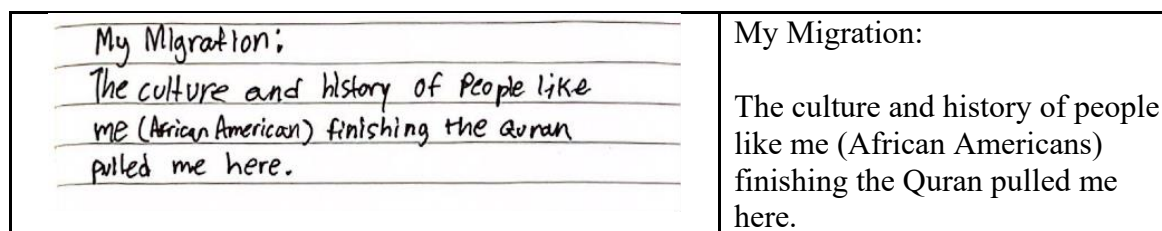 My Migration:
The culture and history of People like
me (African American) finishing the Quran
pulled me here.
My Migration:
The culture and history of people
like me (African Americans)
finishing the Quran pulled me
here.